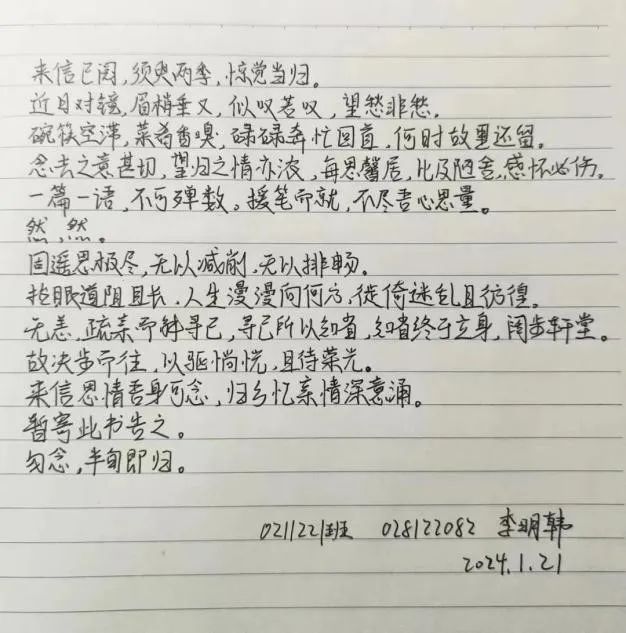 来信已阅，须臾两季，惊觉当归。
近日对镜，眉梢垂又，似叹若叹，望愁非愁。
碗筷空滞，菜肴香嗅，碌碌奔忙回首，何时故里还留。
念去之意甚切，望归之情亦浓，每思馨居，比及陋舍，感怀必伤。
一篇一语，不可殚数。援笔而就，不尽吾心思量。
然，然。
因遥思极尽，无以减削，无以排畅。
拾眠道阻且长，人生漫漫向何方，徙倚迷乱且彷徨。
无恙，疏素而斜寻己，寻己所以知省，知省终于立身，阔步轩堂。
故决步而往，以驱惝恍，且待荣光。
来信恩情吾身可念，归乡忆亲情深意涌。
暂寄此书告之。
勿念，半旬即归。
0211221班 028122082 李明韩
2024.1.21